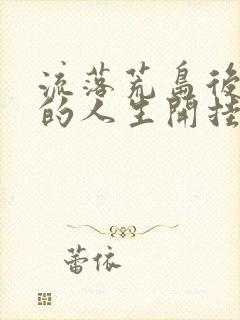 流落荒島後
的人生開挂
蕾依